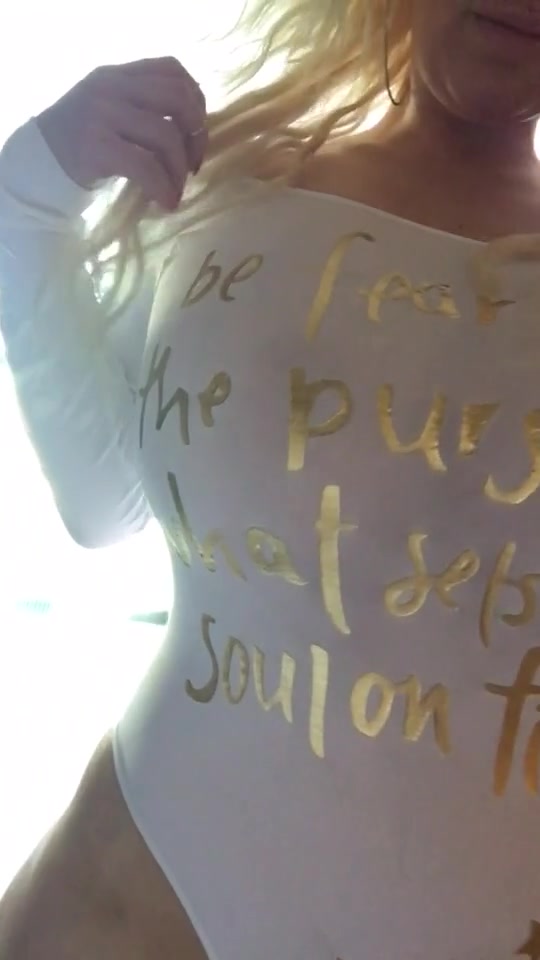 be fear
the purs
that sets
soul on fi